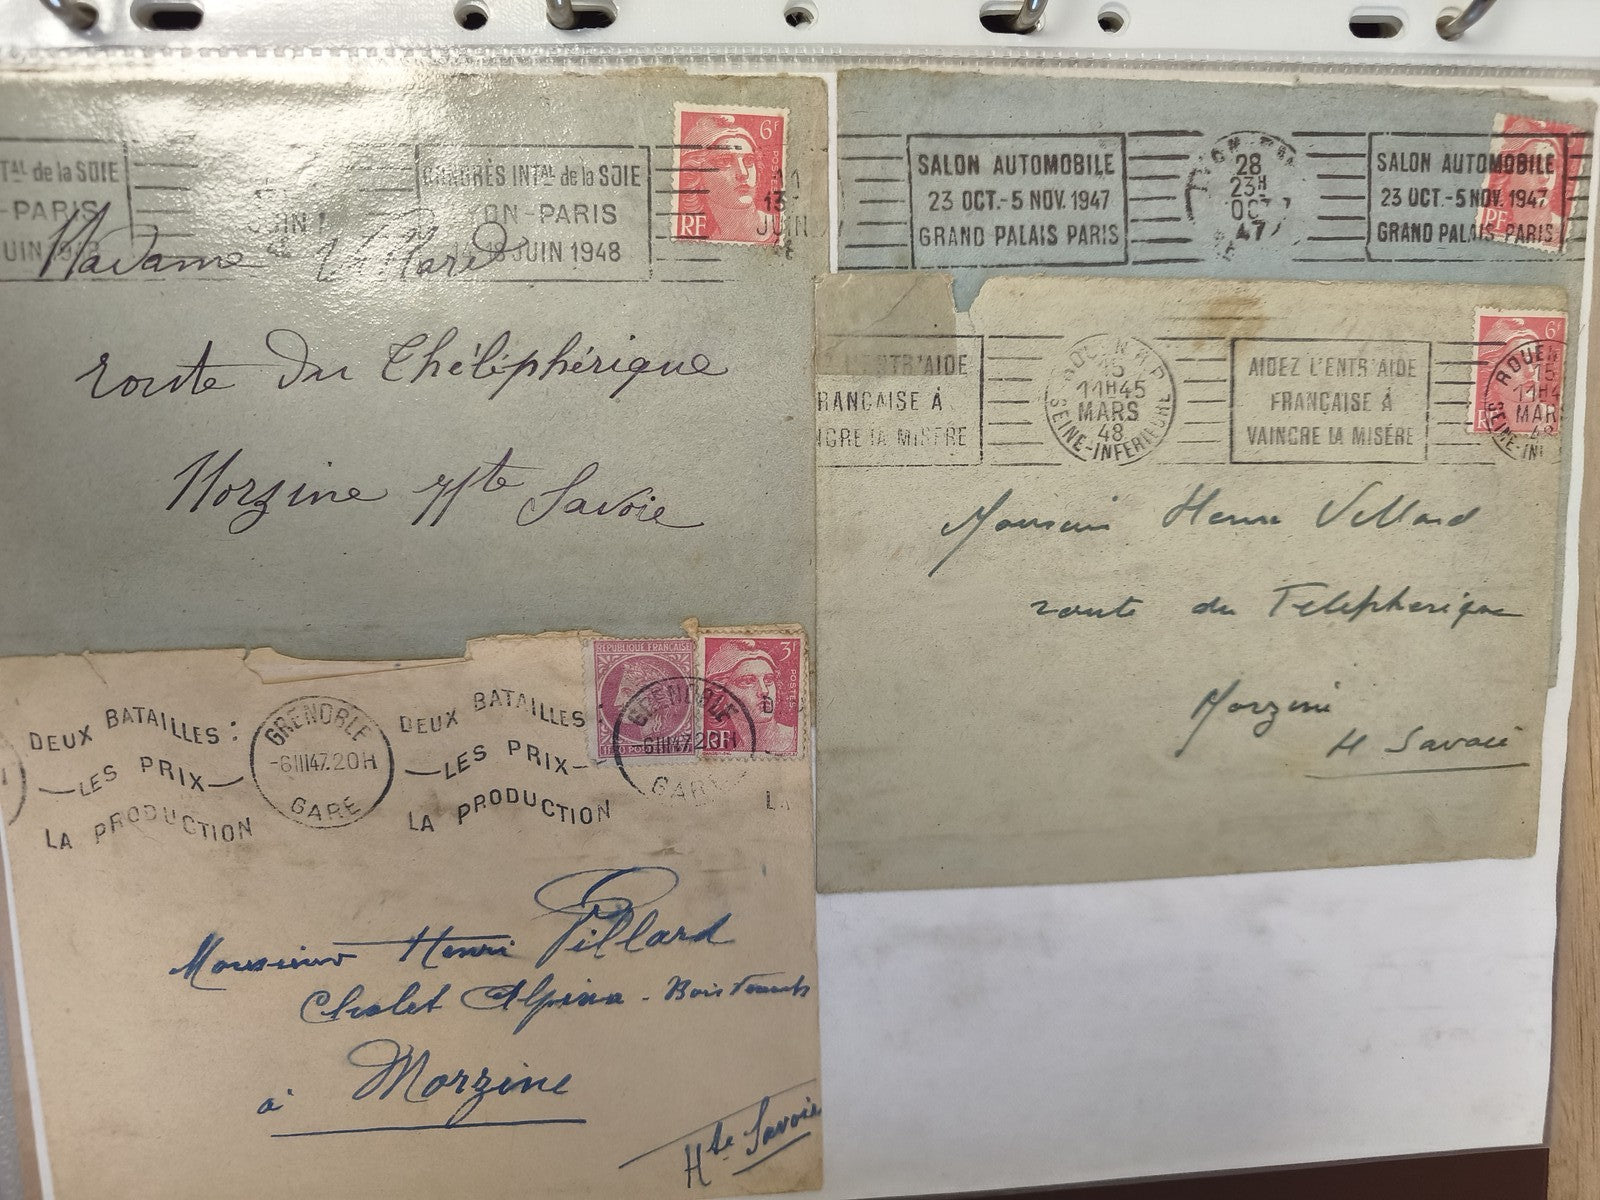 TAL de la SOIE
-PARIS
UIN 1948
JUIN
CONGRÈS INTAL de la SOIE
LYON-PARIS
JUIN 1948
6F
RF
13
JUIN
Madame Villard
route du Théléphérique
Morzine Hte Savoie
SALON AUTOMOBILE
23 OCT.-5 NOV. 1947
GRAND PALAIS PARIS
28
23H
OCT
47
SALON AUTOMOBILE
23 OCT.-5 NOV. 1947
GRAND PALAIS PARIS
RF
L'ENTR'AIDE
RANCAISE À
NCRE LA MISÈRE
ROUEN R.P.
15
11H45
MARS
48
SEINE-INFERIEURE
AIDEZ L'ENTR'AIDE
FRANÇAISE À
VAINCRE LA MISÈRE
6F
ROUEN
15
11H4
MAR
48
SEINE-INF
Monsieur Henri Villard
route du Telepherique
Morzine
H Savoie
DEUX BATAILLES :
—LES PRIX—
LA PRODUCTION
GRENOBLE
-6III47.20H
GARE
DEUX BATAILLES
—LES PRIX—
LA PRODUCTION
REPUBLIQUE FRANÇAISE
3F
POSTES
RF
GRENOBLE
-6III47.20H
GARE
D
LA
Monsieur Henri Villard
Chalet Alpina -
à Morzine
Hte Savoie